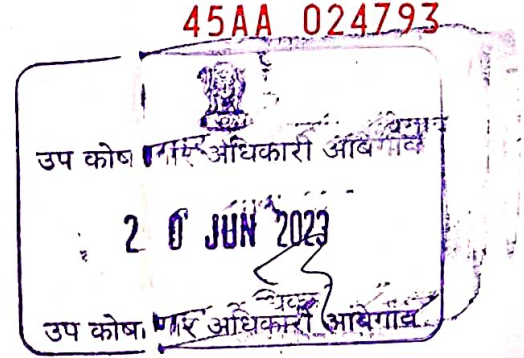 45AA 024793
उप कोषागार अधिकारी आंबेगांव
2 0 JUN 2023
उप कोषागार अधिकारी आंबेगांव